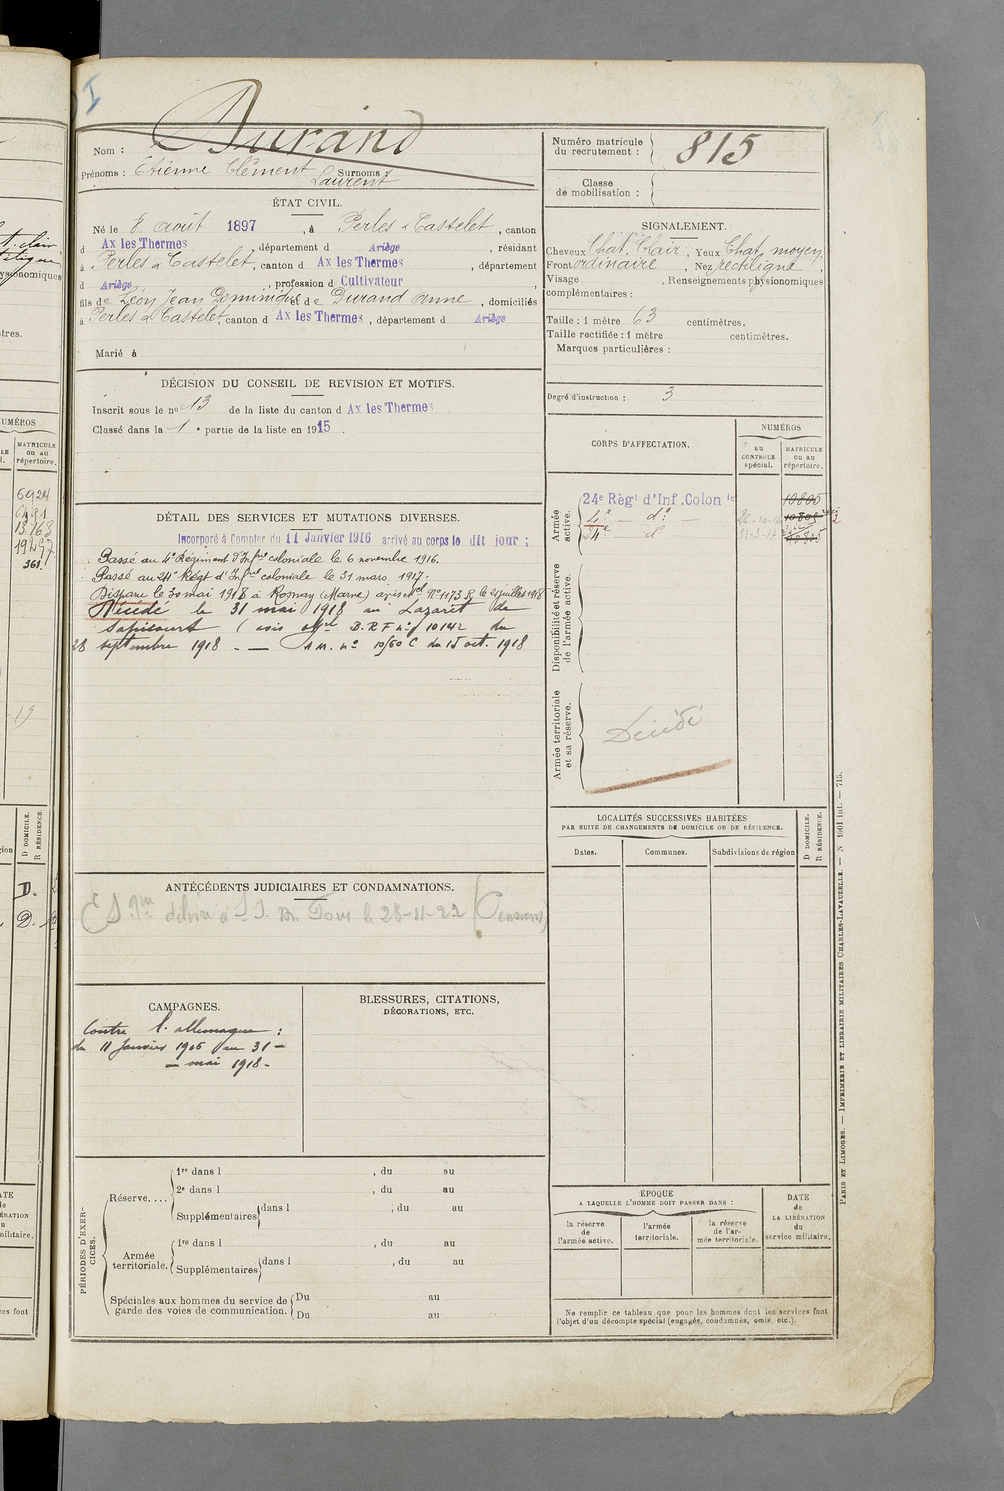 I
Nom : Durand
Prénoms : Etienne Clément Laurent Surnoms :
ÉTAT CIVIL.
Né le 8 août 1897, à Perles & Castelet, canton
d Ax les Thermes, département d Ariège, résidant
à Perles & Castelet, canton d Ax les Thermes, département
d Ariège, profession d Cultivateur
fils de Léon Jean Dominique et de Durand Anne, domiciliés
à Perles & Castelet, canton d Ax les Thermes, département d Ariège
Marié à
DÉCISION DU CONSEIL DE REVISION ET MOTIFS.
Inscrit sous le no 13 de la liste du canton d Ax les Thermes
Classé dans la 1e partie de la liste en 1915.
DÉTAIL DES SERVICES ET MUTATIONS DIVERSES.
Incorporé à Compter du 11 Janvier 1916 arrivé au corps le dit jour ;
Passé au 4e Régiment d'Infrie coloniale le 6 novembre 1916.
Passé au 24e Régt d'Infrie coloniale le 31 mars 1917.
Disparu le 30 mai 1918 à Rosnay (Marne) avis offel No 1173 R. le 21 juillet 1918
Décédé le 31 mai 1918 au Lazaret de
Sapicourt (avis offel B.R.F no 10142 du
28 septembre 1918 - — A M. no 10/60 C du 15 oct. 1918
ANTÉCÉDENTS JUDICIAIRES ET CONDAMNATIONS.
le 28-11-22 (Pensions)
CAMPAGNES.
Contre l'allemagne :
du 11 Janvier 1916 au 31 —
— mai 1918 -
BLESSURES, CITATIONS,
DÉCORATIONS, ETC.
PÉRIODES D'EXERCICES.
Réserve....
1re dans l , du au
2e dans l , du au
Supplémentaires dans l , du au
Armée territoriale.
1re dans l , du au
Supplémentaires dans l , du au
Spéciales aux hommes du service de garde des voies de communication.
Du au
Du au
Numéro matricule du recrutement : 815
Classe de mobilisation :
SIGNALEMENT.
Cheveux Chat. Clair, Yeux Chat. moyen
Front ordinaire, Nez rectiligne,
Visage , Renseignements physionomiques
complémentaires :
Taille : 1 mètre 63 centimètres.
Taille rectifiée : 1 mètre centimètres.
Marques particulières :
Degré d'instruction : 3
CORPS D'AFFECTATION.
NUMÉROS
au CONTROLE spécial.
MATRICULE ou au répertoire.
Armée active.
24e Règt d'Inf. Colon le
4e — do :
24e — do
Disponibilité et réserve de l'armée active.
Armée territoriale et sa réserve.
Décédé
LOCALITÉS SUCCESSIVES HABITÉES
PAR SUITE DE CHANGEMENTS DE DOMICILE OU DE RÉSIDENCE.
Dates.
Communes.
Subdivisions de région
D DOMICILE.
R RÉSIDENCE.
ÉPOQUE
A LAQUELLE L'HOMME DOIT PASSER DANS :
la réserve de l'armée active.
l'armée territoriale.
la réserve de l'armée territoriale.
DATE de LA LIBÉRATION du service militaire.
Ne remplir ce tableau que pour les hommes dont les services font
l'objet d'un décompte spécial (engagés, condamnés, omis, etc.).
PARIS ET LIMOGES. — IMPRIMERIE ET LIBRAIRIE MILITAIRES CHARLES-LAVAUZELLE. — N 1001 int. — 715.